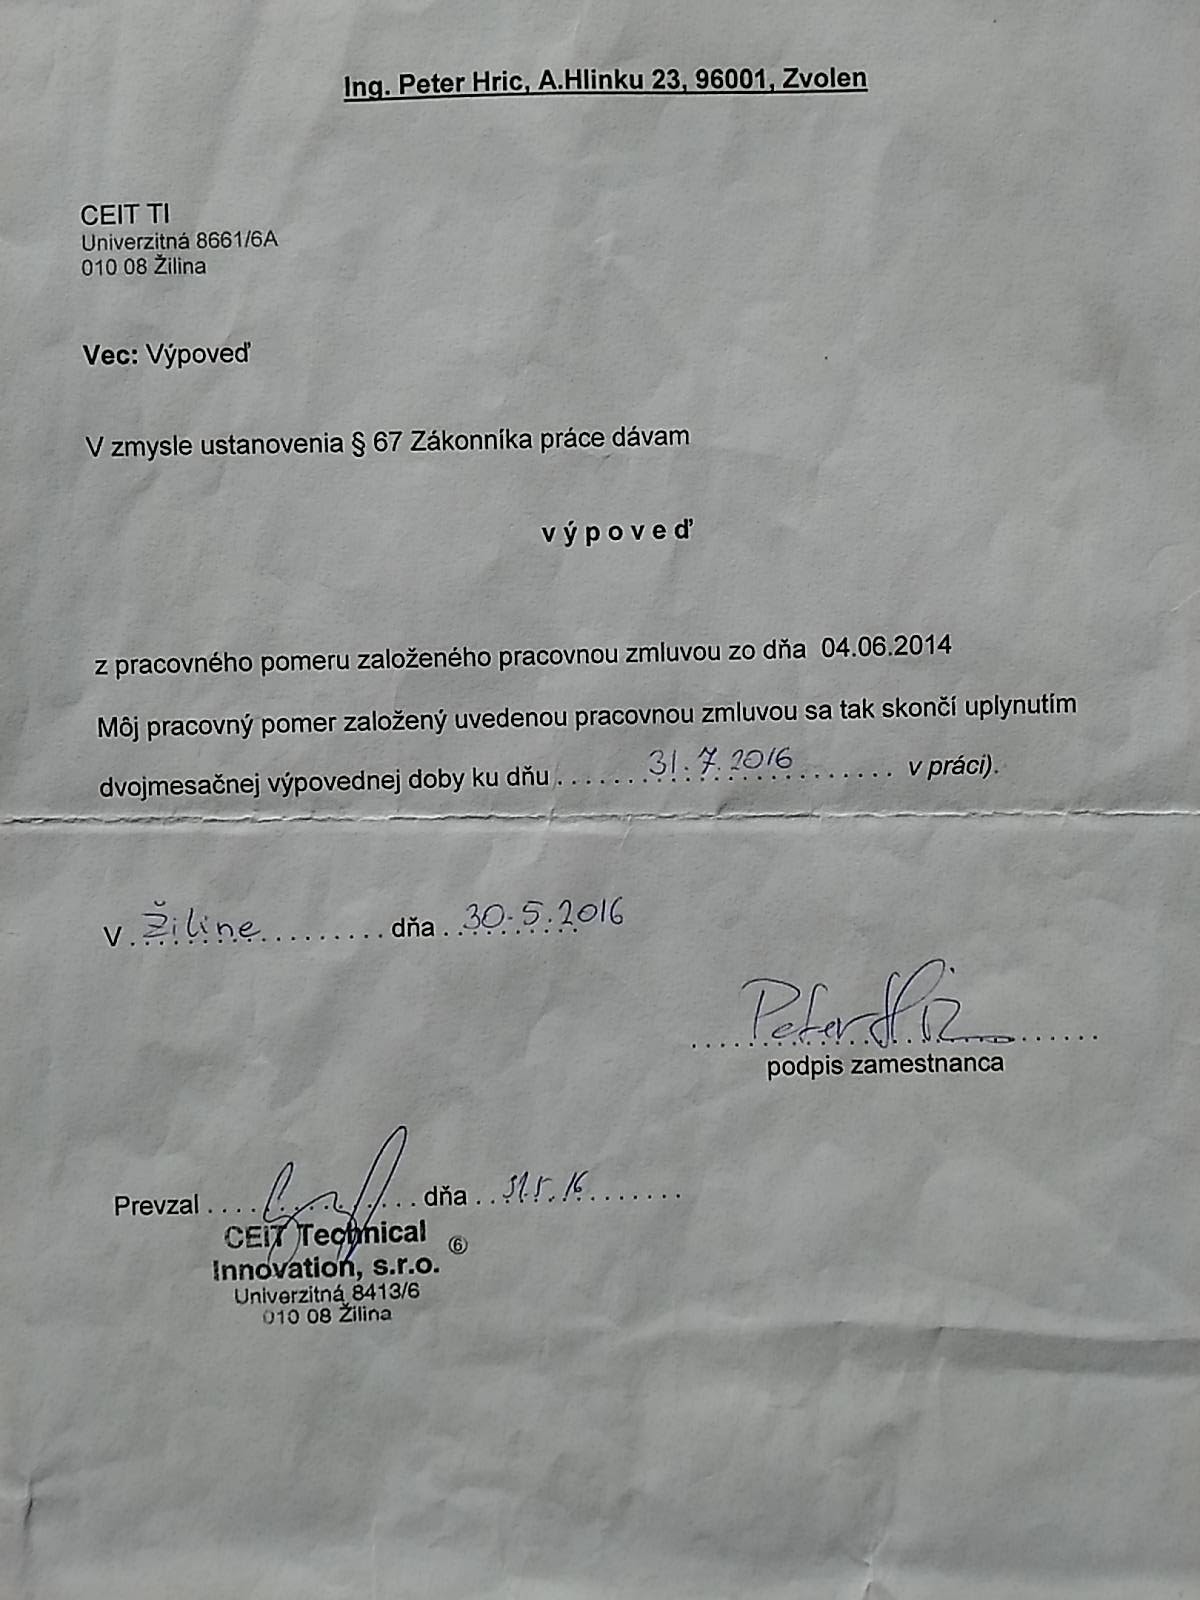 Ing. Peter Hric, A.Hlinku 23, 96001, Zvolen
CEIT TI
Univerzitná 8661/6A
010 08 Žilina
Vec: Výpoveď
V zmysle ustanovenia § 67 Zákonníka práce dávam
v ý p o v e ď
z pracovného pomeru založeného pracovnou zmluvou zo dňa 04.06.2014
Môj pracovný pomer založený uvedenou pracovnou zmluvou sa tak skončí uplynutím
dvojmesačnej výpovednej doby ku dňu 31.7.2016 v práci).
V Žiline dňa 30.5.2016
Peter Hric
podpis zamestnanca
Prevzal dňa 31.5.16
CEIT Technical
Innovation, s.r.o.
6
Univerzitná 8413/6
010 08 Žilina